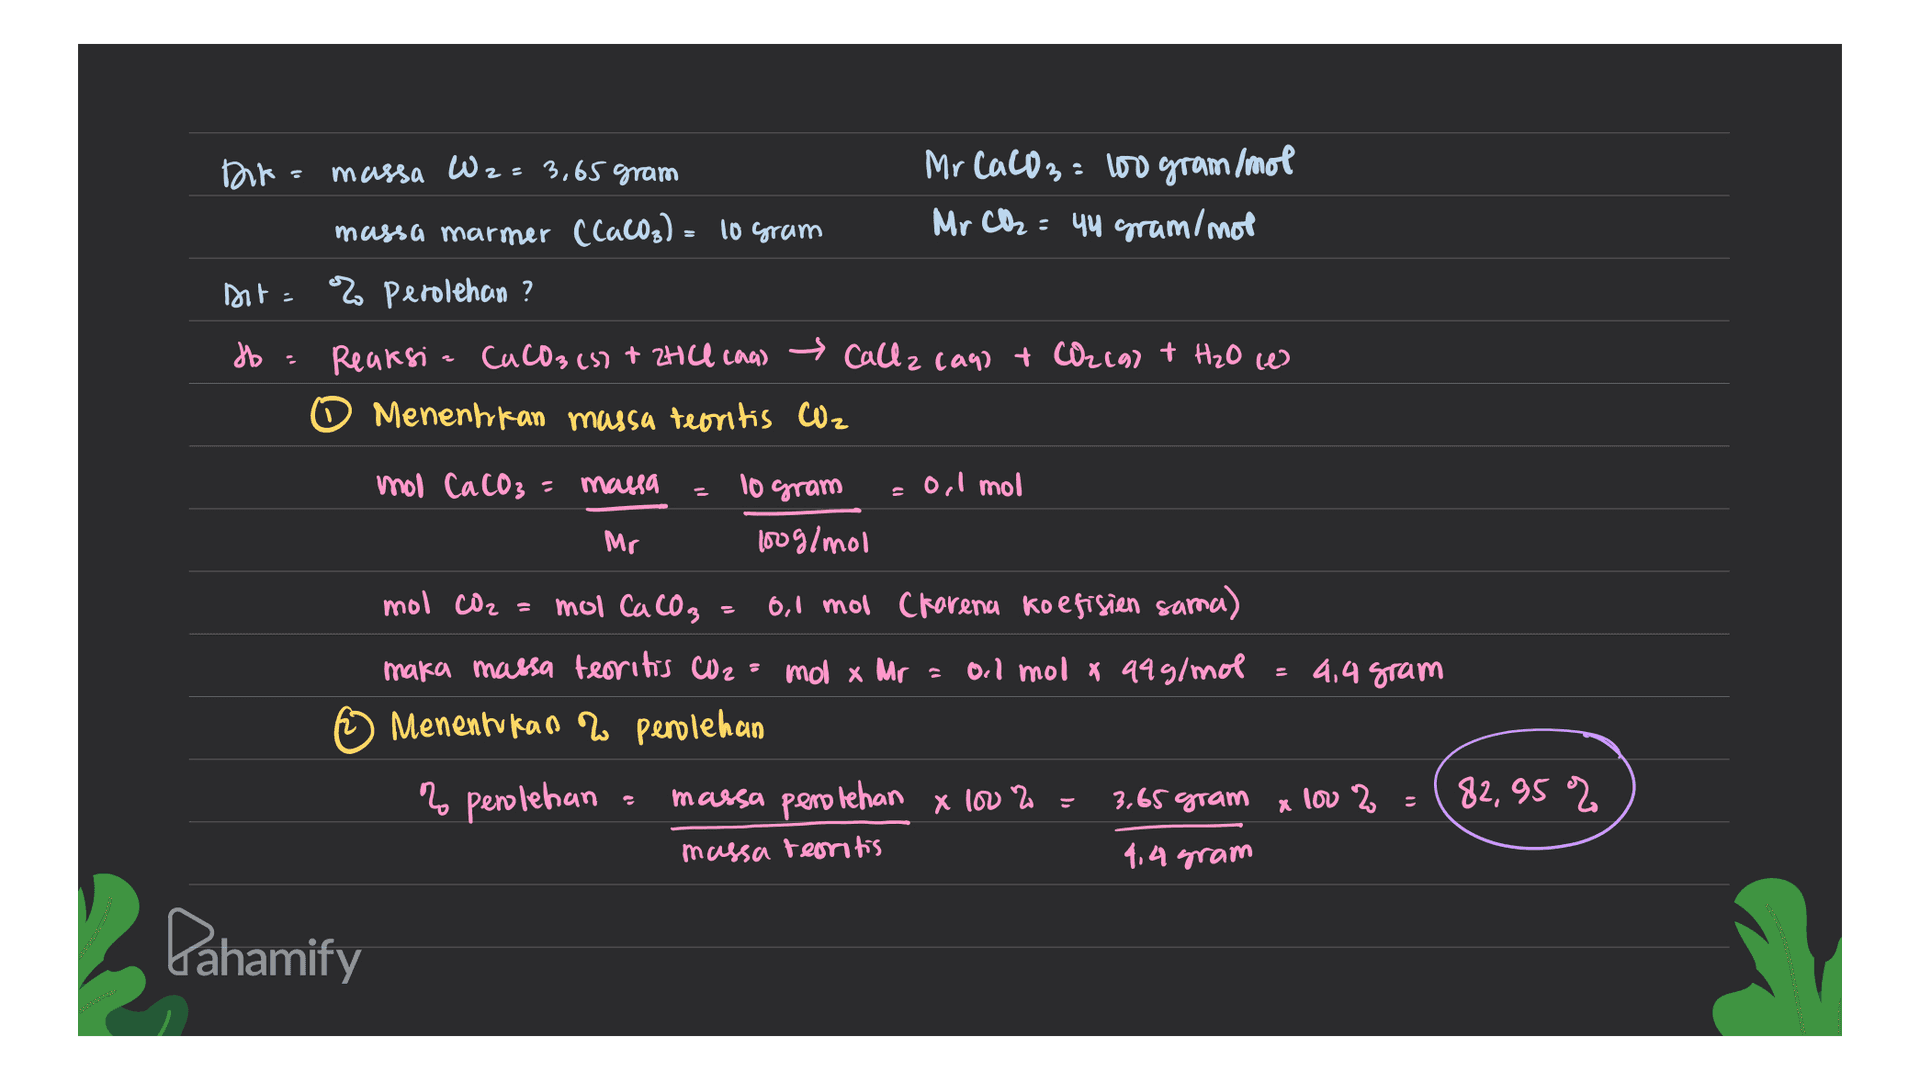 Dik = massa CO2 = 3,65 gram Mr CaCO3 = 100 gram/mol
massa marmer (CaCO3) = 10 gram Mr CO2 = 44 gram/mol
Dit = % perolehan ?
db = Reaksi = CaCO3 (s) + 2HCl (aq) → CaCl2 (aq) + CO2 (g) + H2O (l)
① Menentukan massa teoritis CO2
mol CaCO3 = massa = 10 gram = 0,1 mol
Mr 100 g/mol
mol CO2 = mol CaCO3 = 0,1 mol (karena koefisien sama)
maka massa teoritis CO2 = mol x Mr = 0.1 mol x 44 g/mol = 4,4 gram
② Menentukan % perolehan
% perolehan = massa perolehan x 100 % = 3.65 gram x 100 % = 82,95 %
massa teoritis 4,4 gram
Pahamify